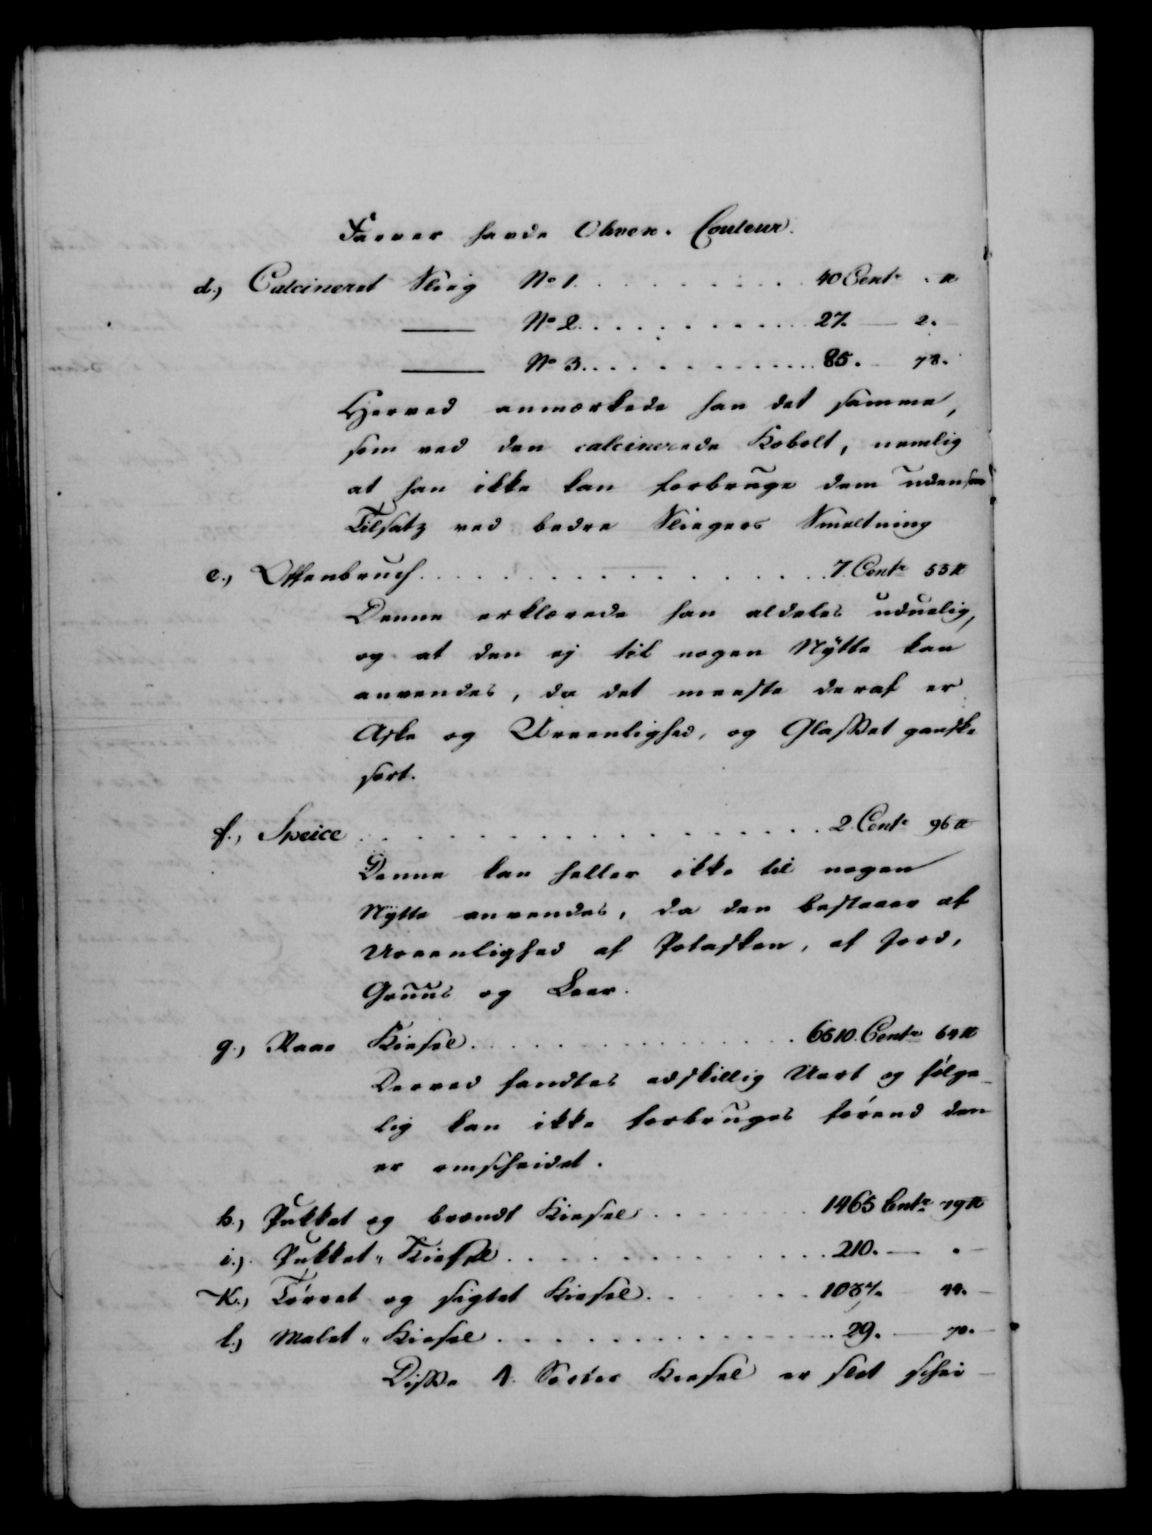 Farver havde Ohven. Couleur.
d., Calcineret Slieg No 1. . . . . . . . . . 40 Centr . ℔
——— No 2. . . . . . . . . . . 27. — 2. —
——— No 3. . . . . . . . . . . 85. — 78.
Herved anmærkede han det samme,
som ved den calcinerede Kobolt, nemlig
at han ikke kan forbruge dem uden som
Tilsatz ved bedre Sliegers Smeltning
e., Offenbruch . . . . . . . . . . . . . . 7. Centr 53 ℔
Denne erklærede han aldeles uduelig,
og at den ej til nogen Nÿtte kan
anvendes, da det meeste deraf er
Aske og Ureenlighed, og Glasset ganske
sort.
f., Speice . . . . . . . . . . . . . . . . 2. Centr 96 ℔
Denne kan heller ikke til nogen
Nÿtte anvendes, da den bestaaer af
Ureenlighed af Potasken, af Jord,
Gruus og Leer.
g., Raae Kiesel . . . . . . . . . . . . 6510. Centr 64 ℔
Derved fandtes adskillig Uart og følge-
lig kan ikke forbruges førend den
er omscheidet.
h., Pukket og brændt Kiesel . . . . . . 1465 Centr 79 ℔
i.,. Pukket " Kiesel . . . . . . . . . . . 210. — . —
K., Tørret og sigtet Kiesel. . . . . . . 1087. 44. —
l., Malet " Kiesel . . . . . . . . . . . . 29. — 70. —
Disse 4. Sorter Kiesel er slet schei-